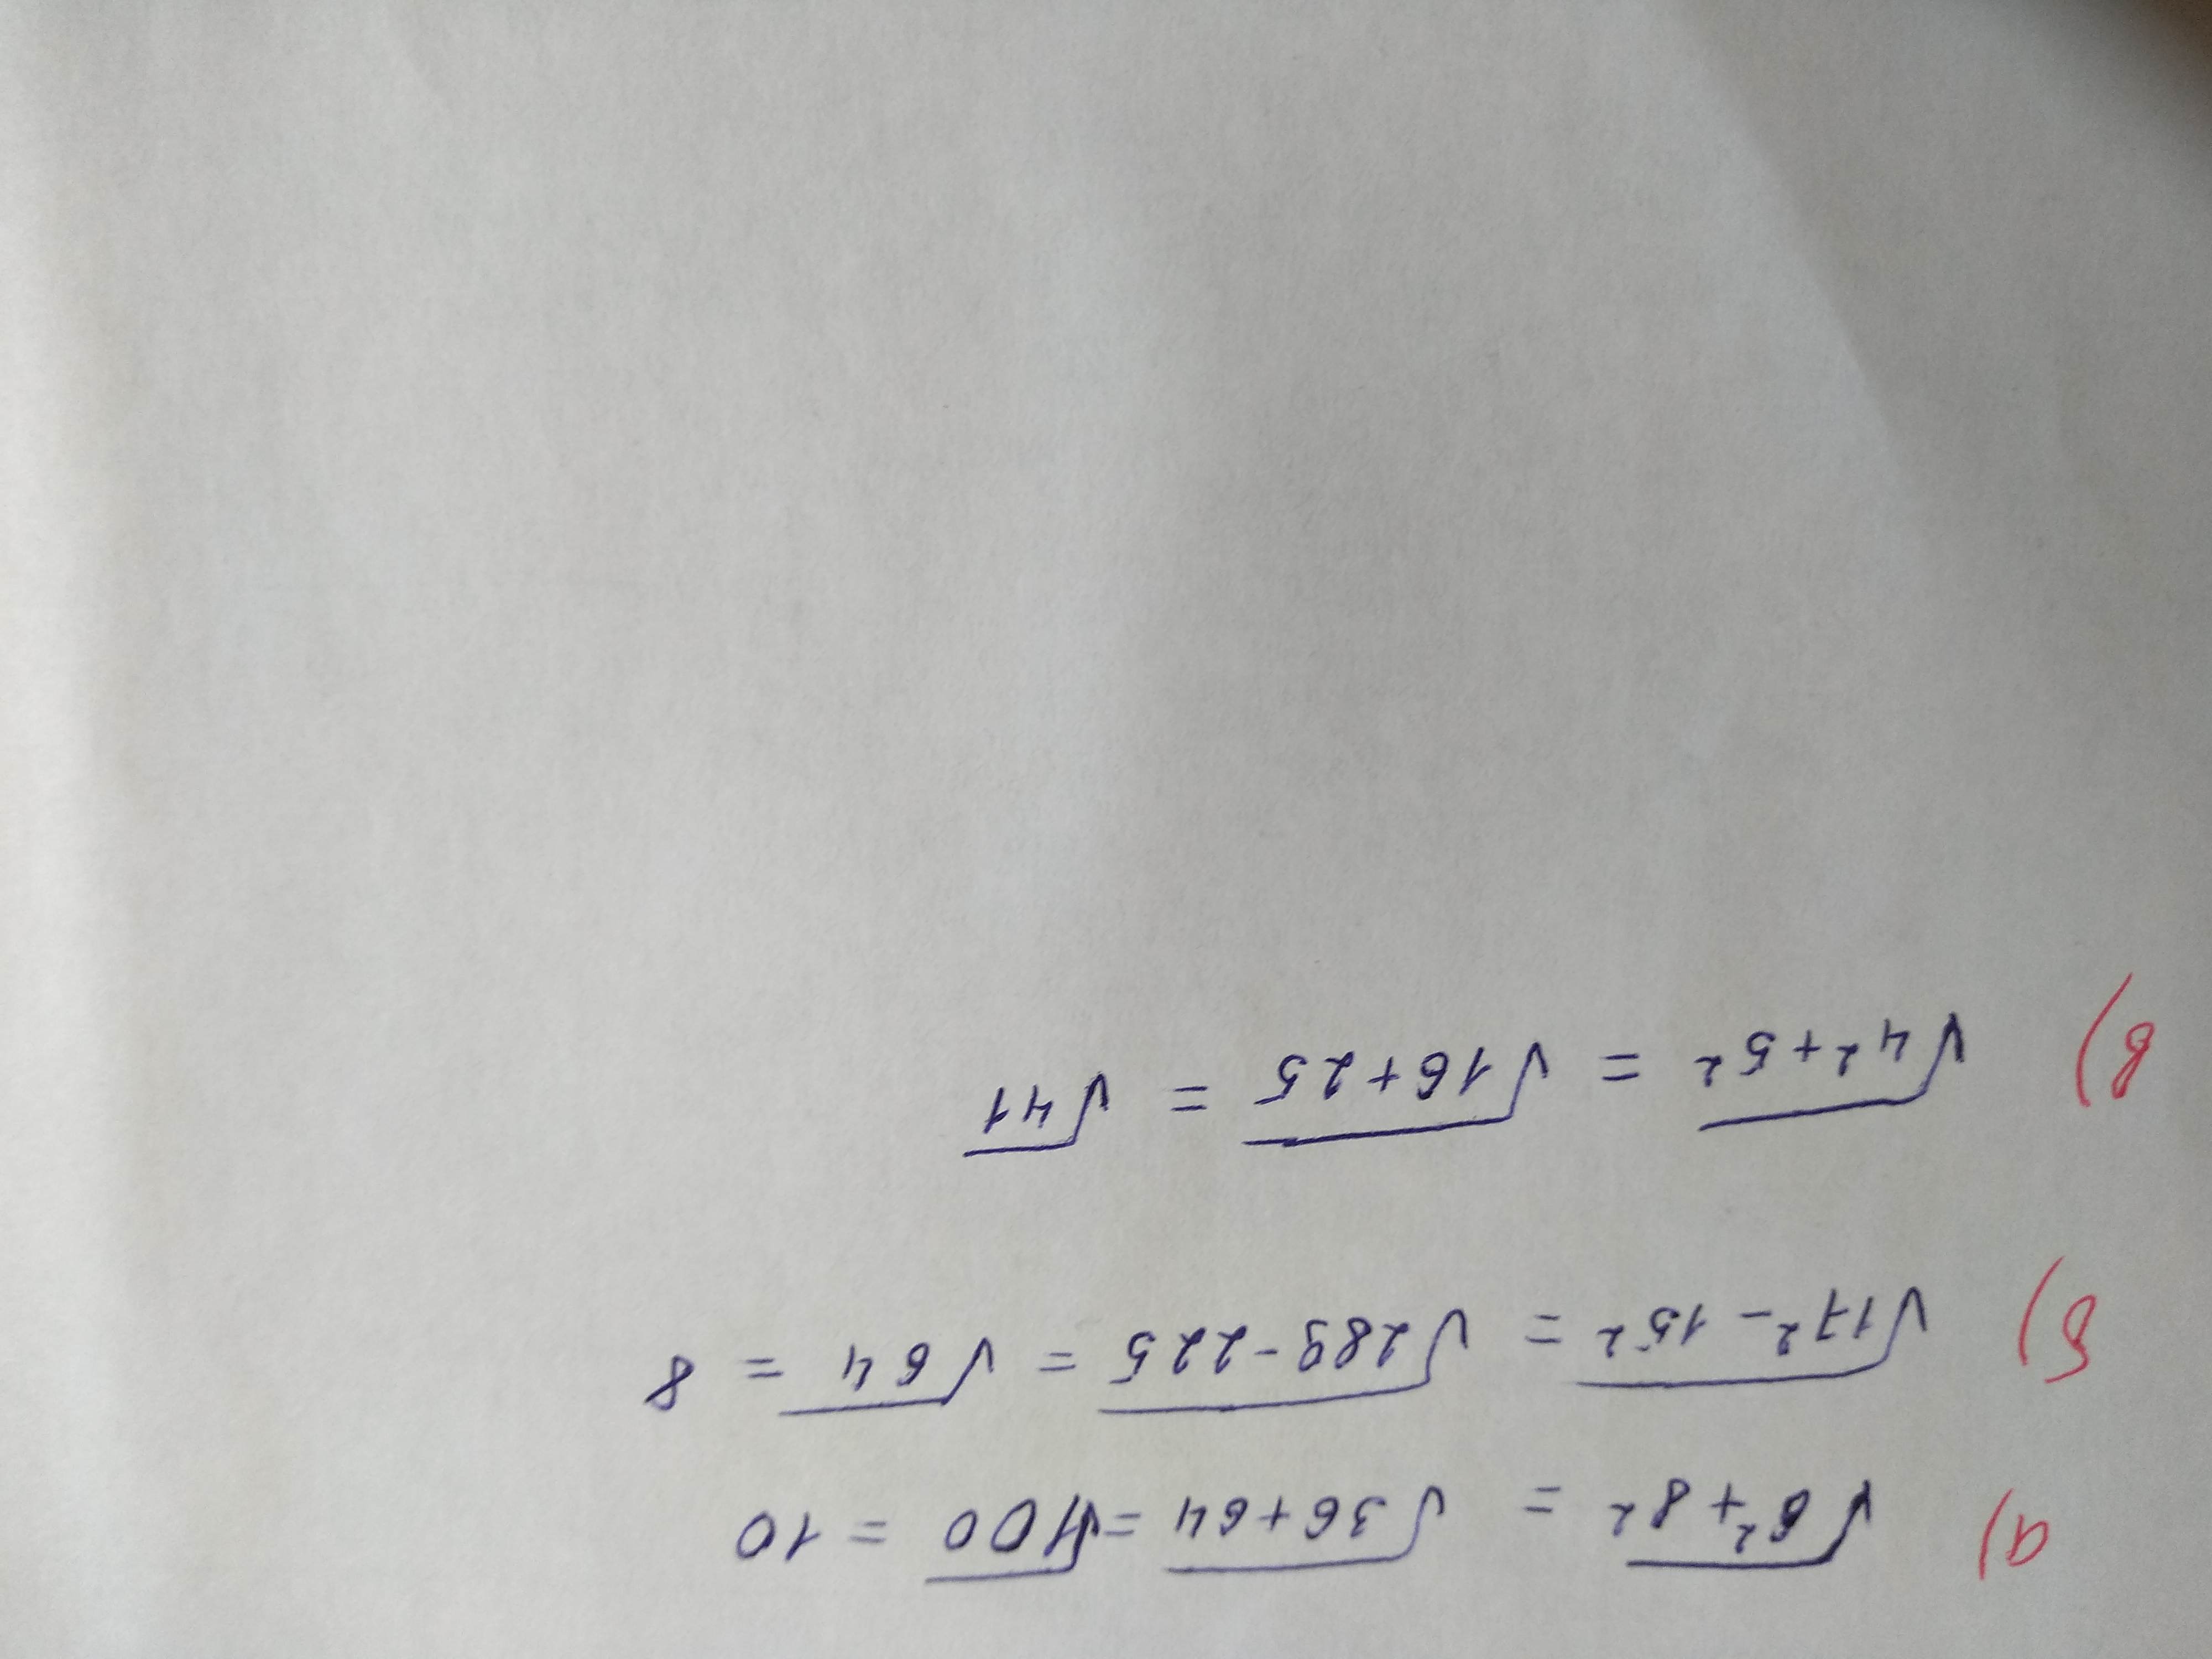 а) √6²+8² = √36+64 = √100 = 10
б) √17²-15² = √289-225 = √64 = 8
в) √4²+5² = √16+25 = √41